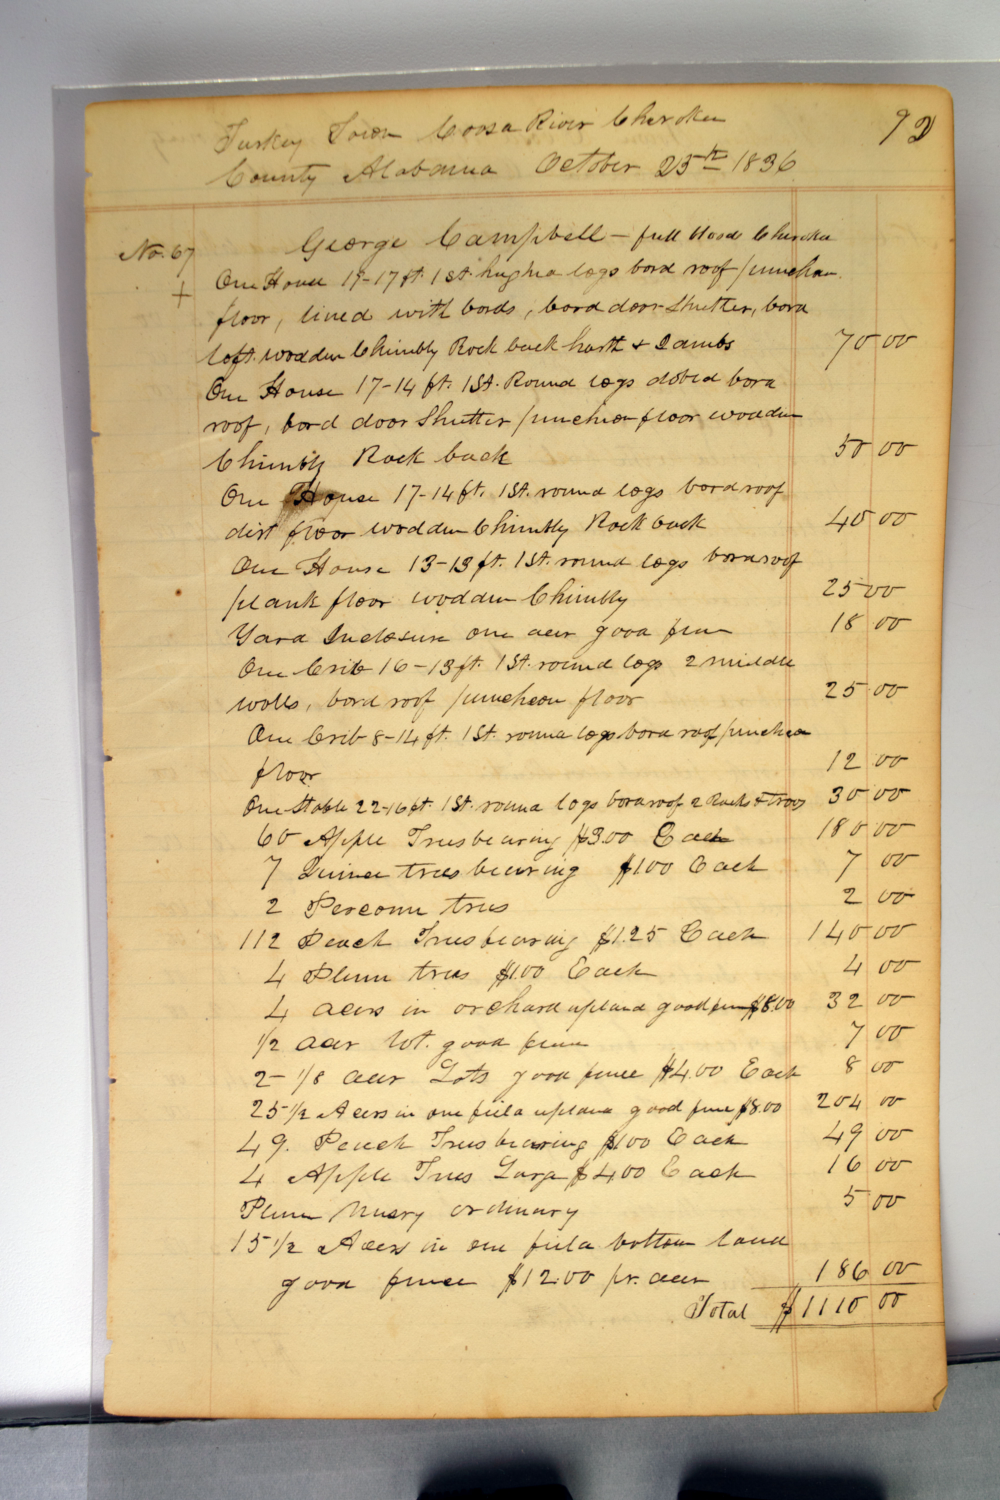 Turkey Town Coosa River Cherokee
92
County Alabama October 25th 1836
No. 67
George Campbell – full blood Cherokee
+
One House 19-17 ft. 1 St. hughed logs bord roof puncheon
floor, lined with bords, bord door shutter, bord
loft wodden Chimbly Rock back harth & Jambs 70 00
One House 17-14 ft. 1 St. Round logs dobed bord
roof, bord door Shutter puncheon floor wodden
Chimbly Rock back 50 00
One House 17-14 ft. 1 St. round logs bord roof
dirt floor wodden Chimbly Rock back 40 00
One House 13-13 ft. 1 St. round logs bord roof
plank floor wodden Chimbly 25 00
Yard Inclosure one acer good fence 18 00
One Crib 16-13 ft. 1 St. round logs 2 middle
walls, bord roof puncheon floor 25 00
One Crib 8-14 ft. 1 St. round logs bord roof puncheon
floor 12 00
One Stable 22-16 ft. 1 St. round logs bord roof 2 Racks & Trovs 30 00
60 Apple Trees bearing $3.00 Each 180 00
7 trees bearing $1.00 Each 7 00
2 trees 2 00
112 Peach Trees bearing $1.25 Each 140 00
4 Plum trees $1.00 Each 4 00
4 acers in orchard upland good fence $8.00 32 00
1/2 acer lot. good fence 7 00
2-1/8 acer Lots good fence $4.00 Each 8 00
25 1/2 Acers in one field upland good fence $8.00 204 00
49. Peach Trees bearing $1.00 Each 49 00
4 Apple Trees Large $4.00 Each 16 00
Plum ordinary 5 00
15 1/2 Acers in one field bottom land
good fence $12.00 pr. acer 186 00
Total $1110 00